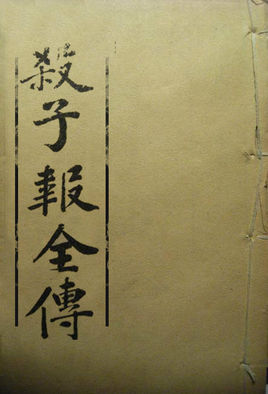 殺子報全傳